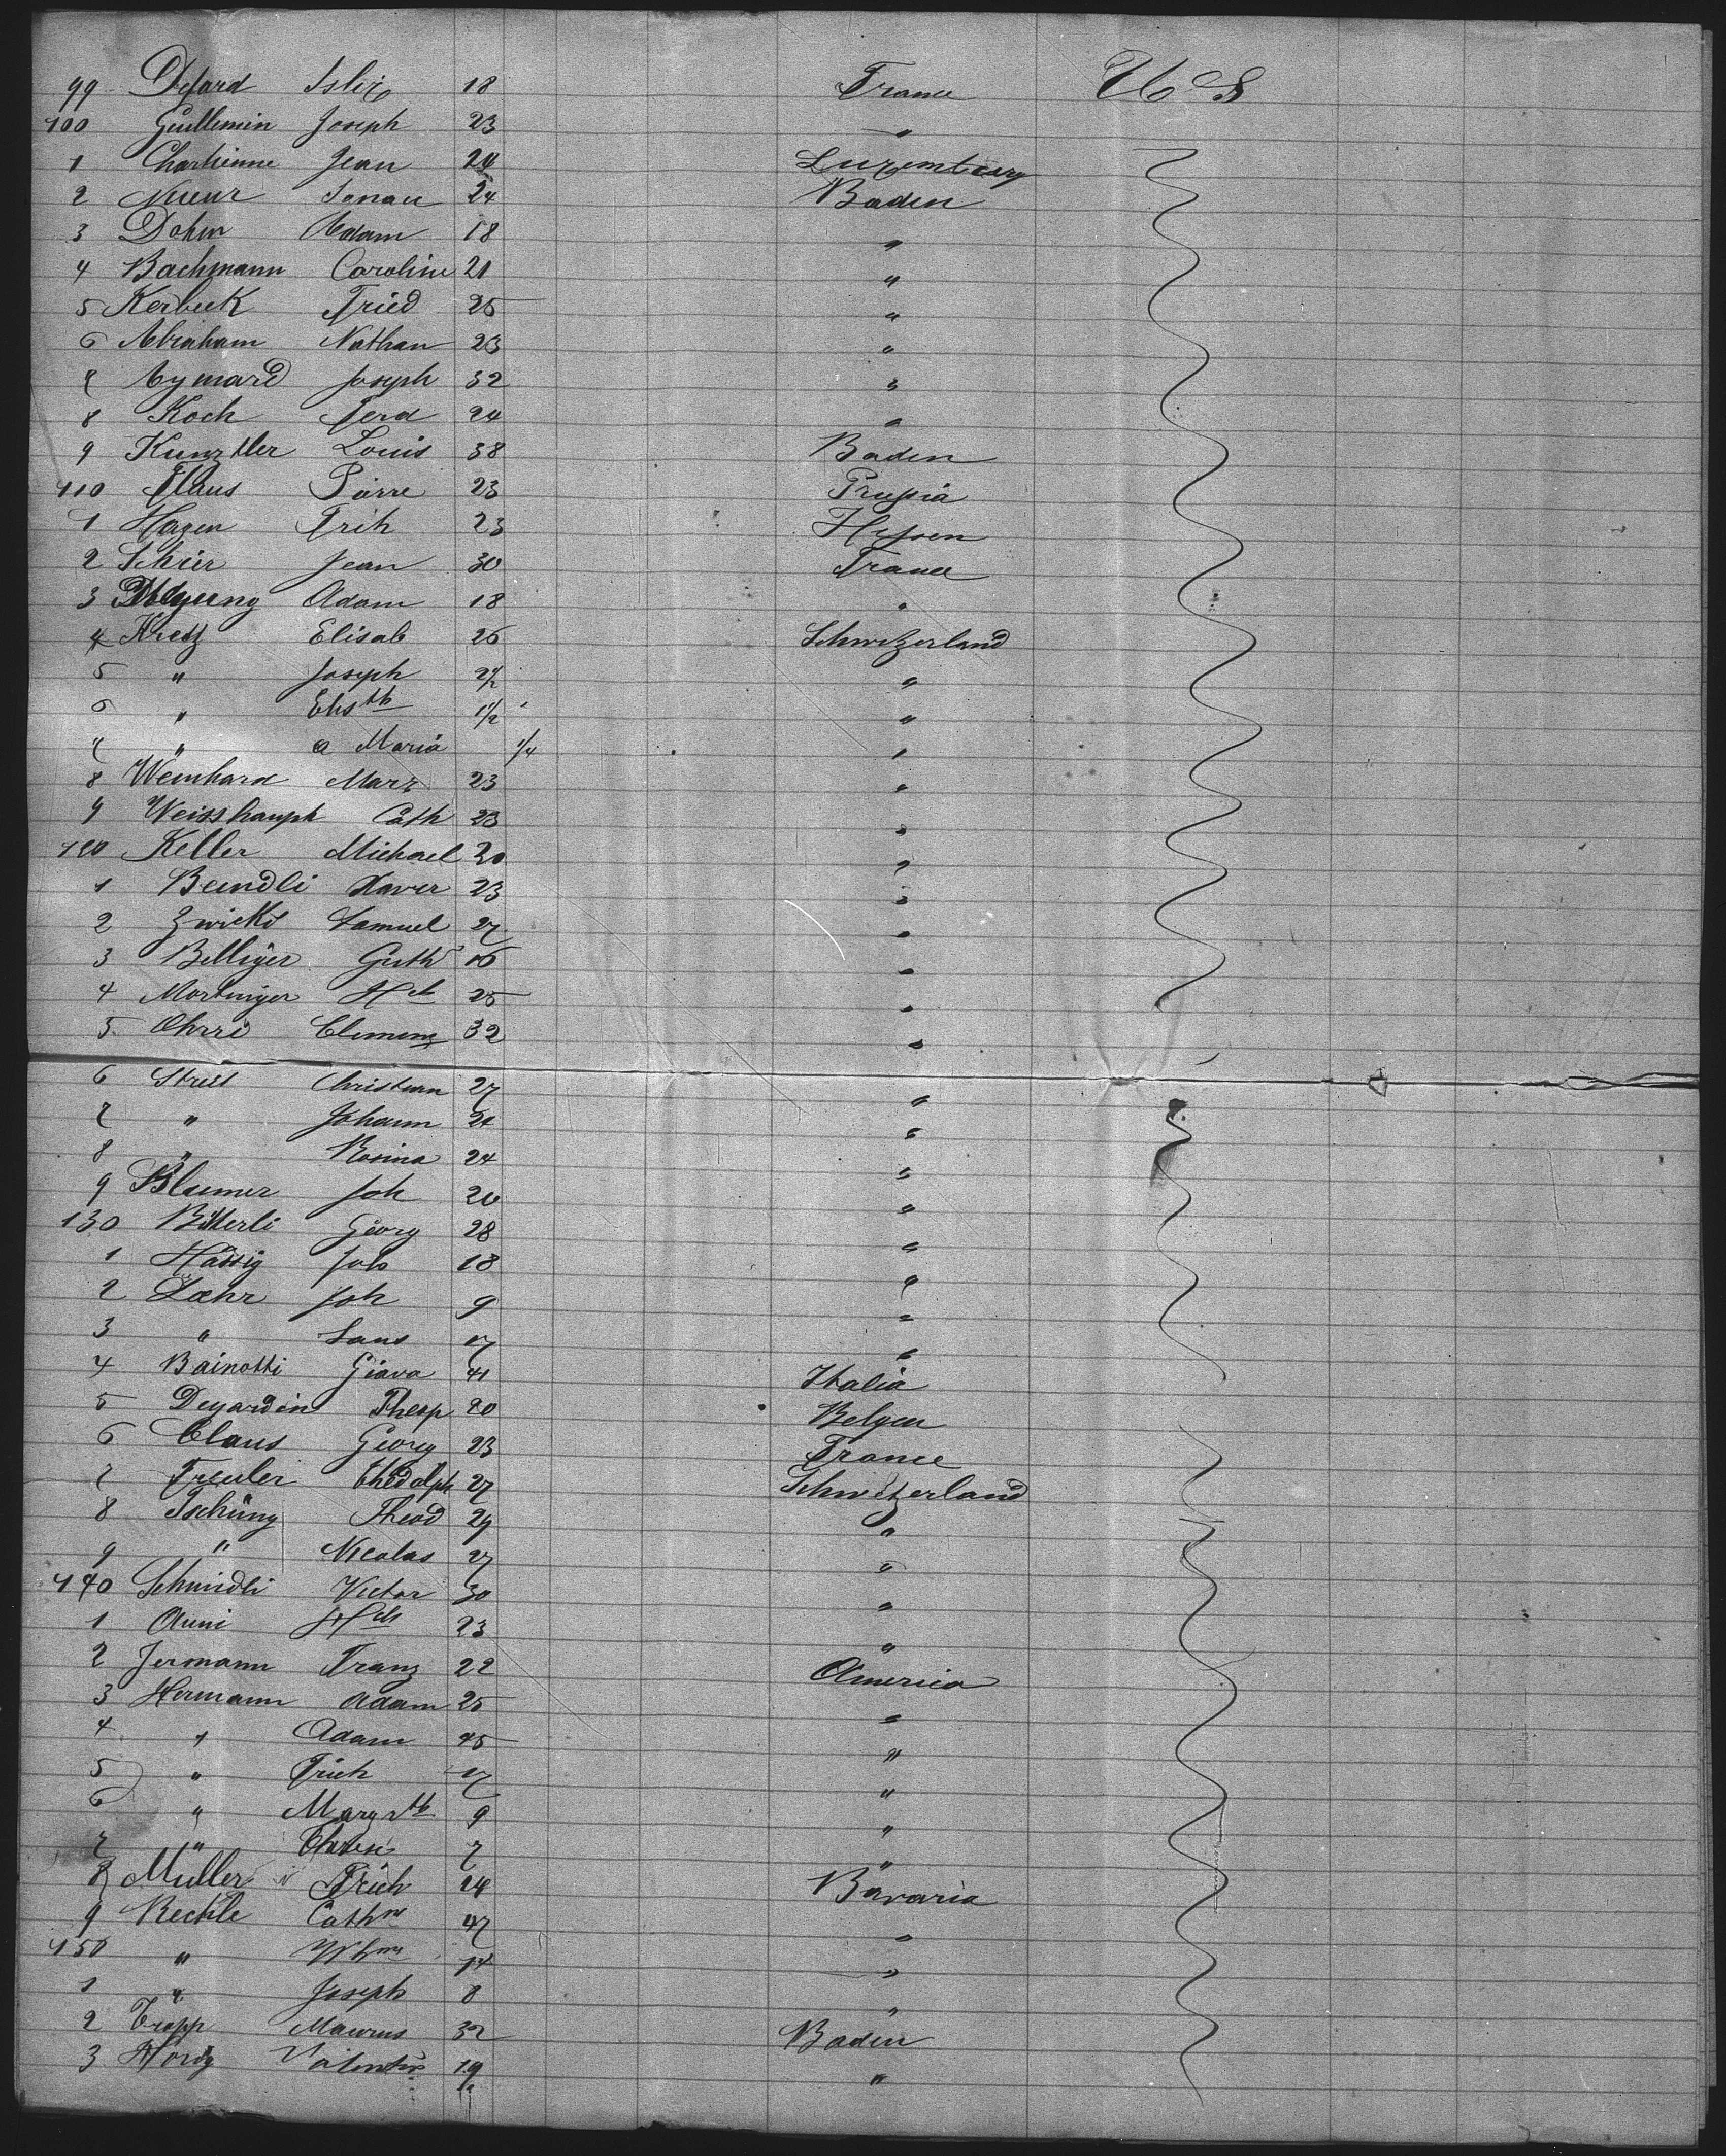 99 Defard 18 France U S
100 Guillemin Joseph 23 "
1 Jean 24 Luxemburg
2 24 Baden
3 Dohm Adam 18 "
4 Bachmann Caroline 21 "
5 Kerbeck Fried 25 "
6 Abraham Nathan 23 "
7 Aymard Joseph 32 "
8 Koch Ferd 24 "
9 Kunztler Louis 38 Baden
110 Klaus Pierre 23 Prussia
1 Hagen 23 Hessen
2 Schier Jean 30 France
3 Adam 18 "
4 Kretz Elisab 26 Schwitzerland
5 " Joseph 2½ "
6 " Elisth 1½ "
7 " a Maria 1/4 "
8 Weinhard 23 "
9 Weisshaupt Cath 23 "
120 Keller Michael 20 "
1 Beindli Xaver 23 "
2 Zwicki Samuel 27 "
3 Belliger 16 "
4 25 "
5 Clemenz 32 "
6 Streit Christian 27 "
7 " Johann 21 "
8 " Rosina 24 "
9 Blumer Joh 20 "
130 Bitterli Georg 28 "
1 Hässig Joh 18 "
2 Joh 9 "
3 " "
4 Bainotti 41 Italia
5 Dejardin Theop 20 Belgen
6 Claus Georg 23 France
7 Freuler 27 Schwitzerland
8 Theod 29 "
9 " Nicolas 27 "
140 Schmidli Victor 30 "
1 23 "
2 Jermann Franz 22 America
3 Hermann Adam 25 "
4 " Adam 45 "
5 " "
6 " Margrth 9 "
7 " 7 "
8 Müller 24 Bavaria
9 Rechle 47 "
150 " 14 "
1 " Joseph 8 "
2 Maurus 32 Baden
3 Valentin 19 "